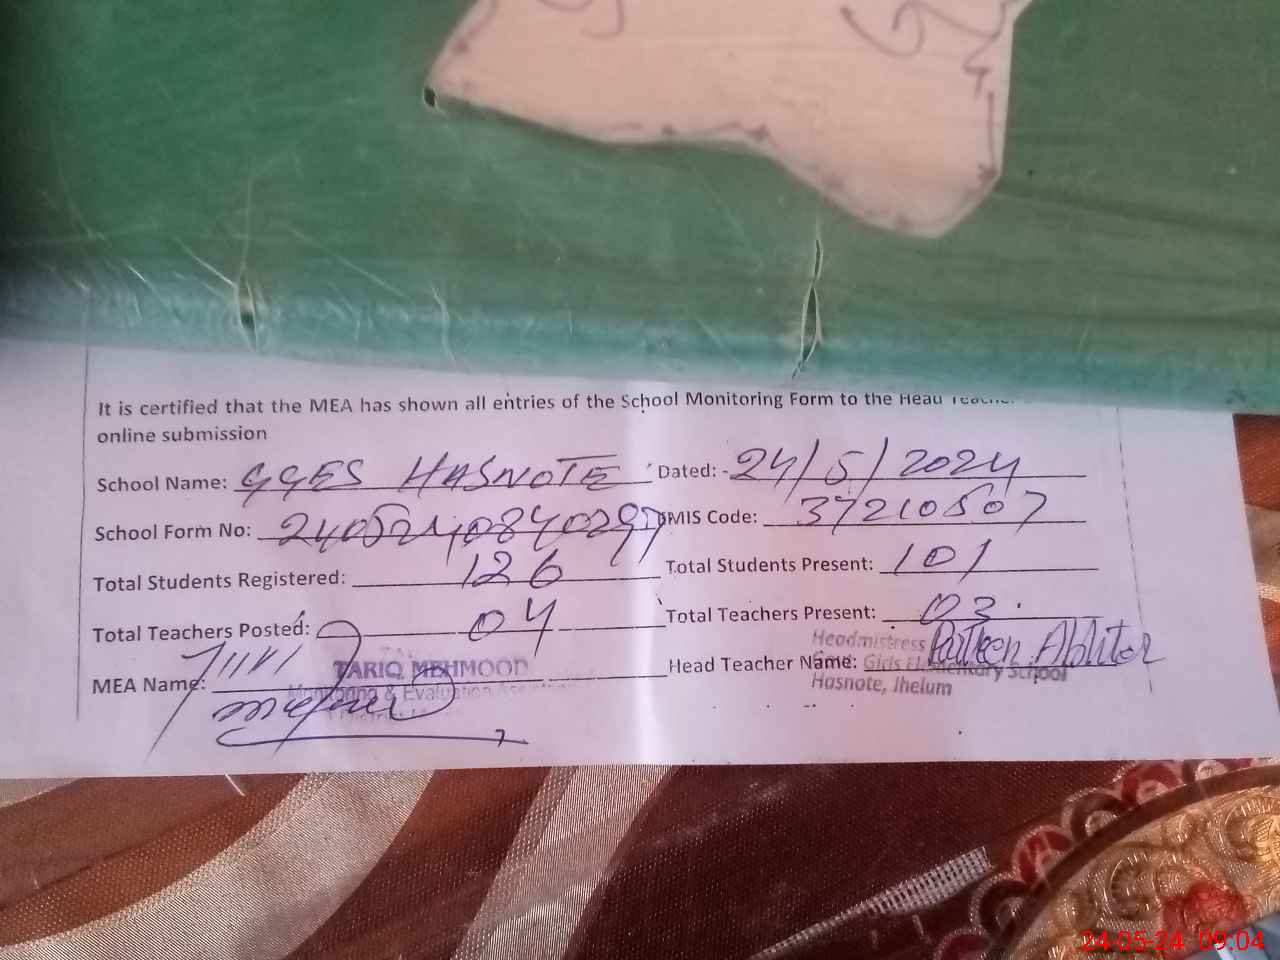 It is certified that the MEA has shown all entries of the School Monitoring Form to the Head Teacher
online submission
School Name: GGES HASNOTE Dated: - 24/5/2024
School Form No: EMIS Code: 37210507
Total Students Registered: 126 Total Students Present: 101
Total Teachers Posted: 04 Total Teachers Present: 03
MEA Name: TARIQ MEHMOOD Head Teacher Name:
Monitoring & Evaluation
Headmistress
Girls Elementary School
Hasnote, Jhelum
24-05-24 09:04